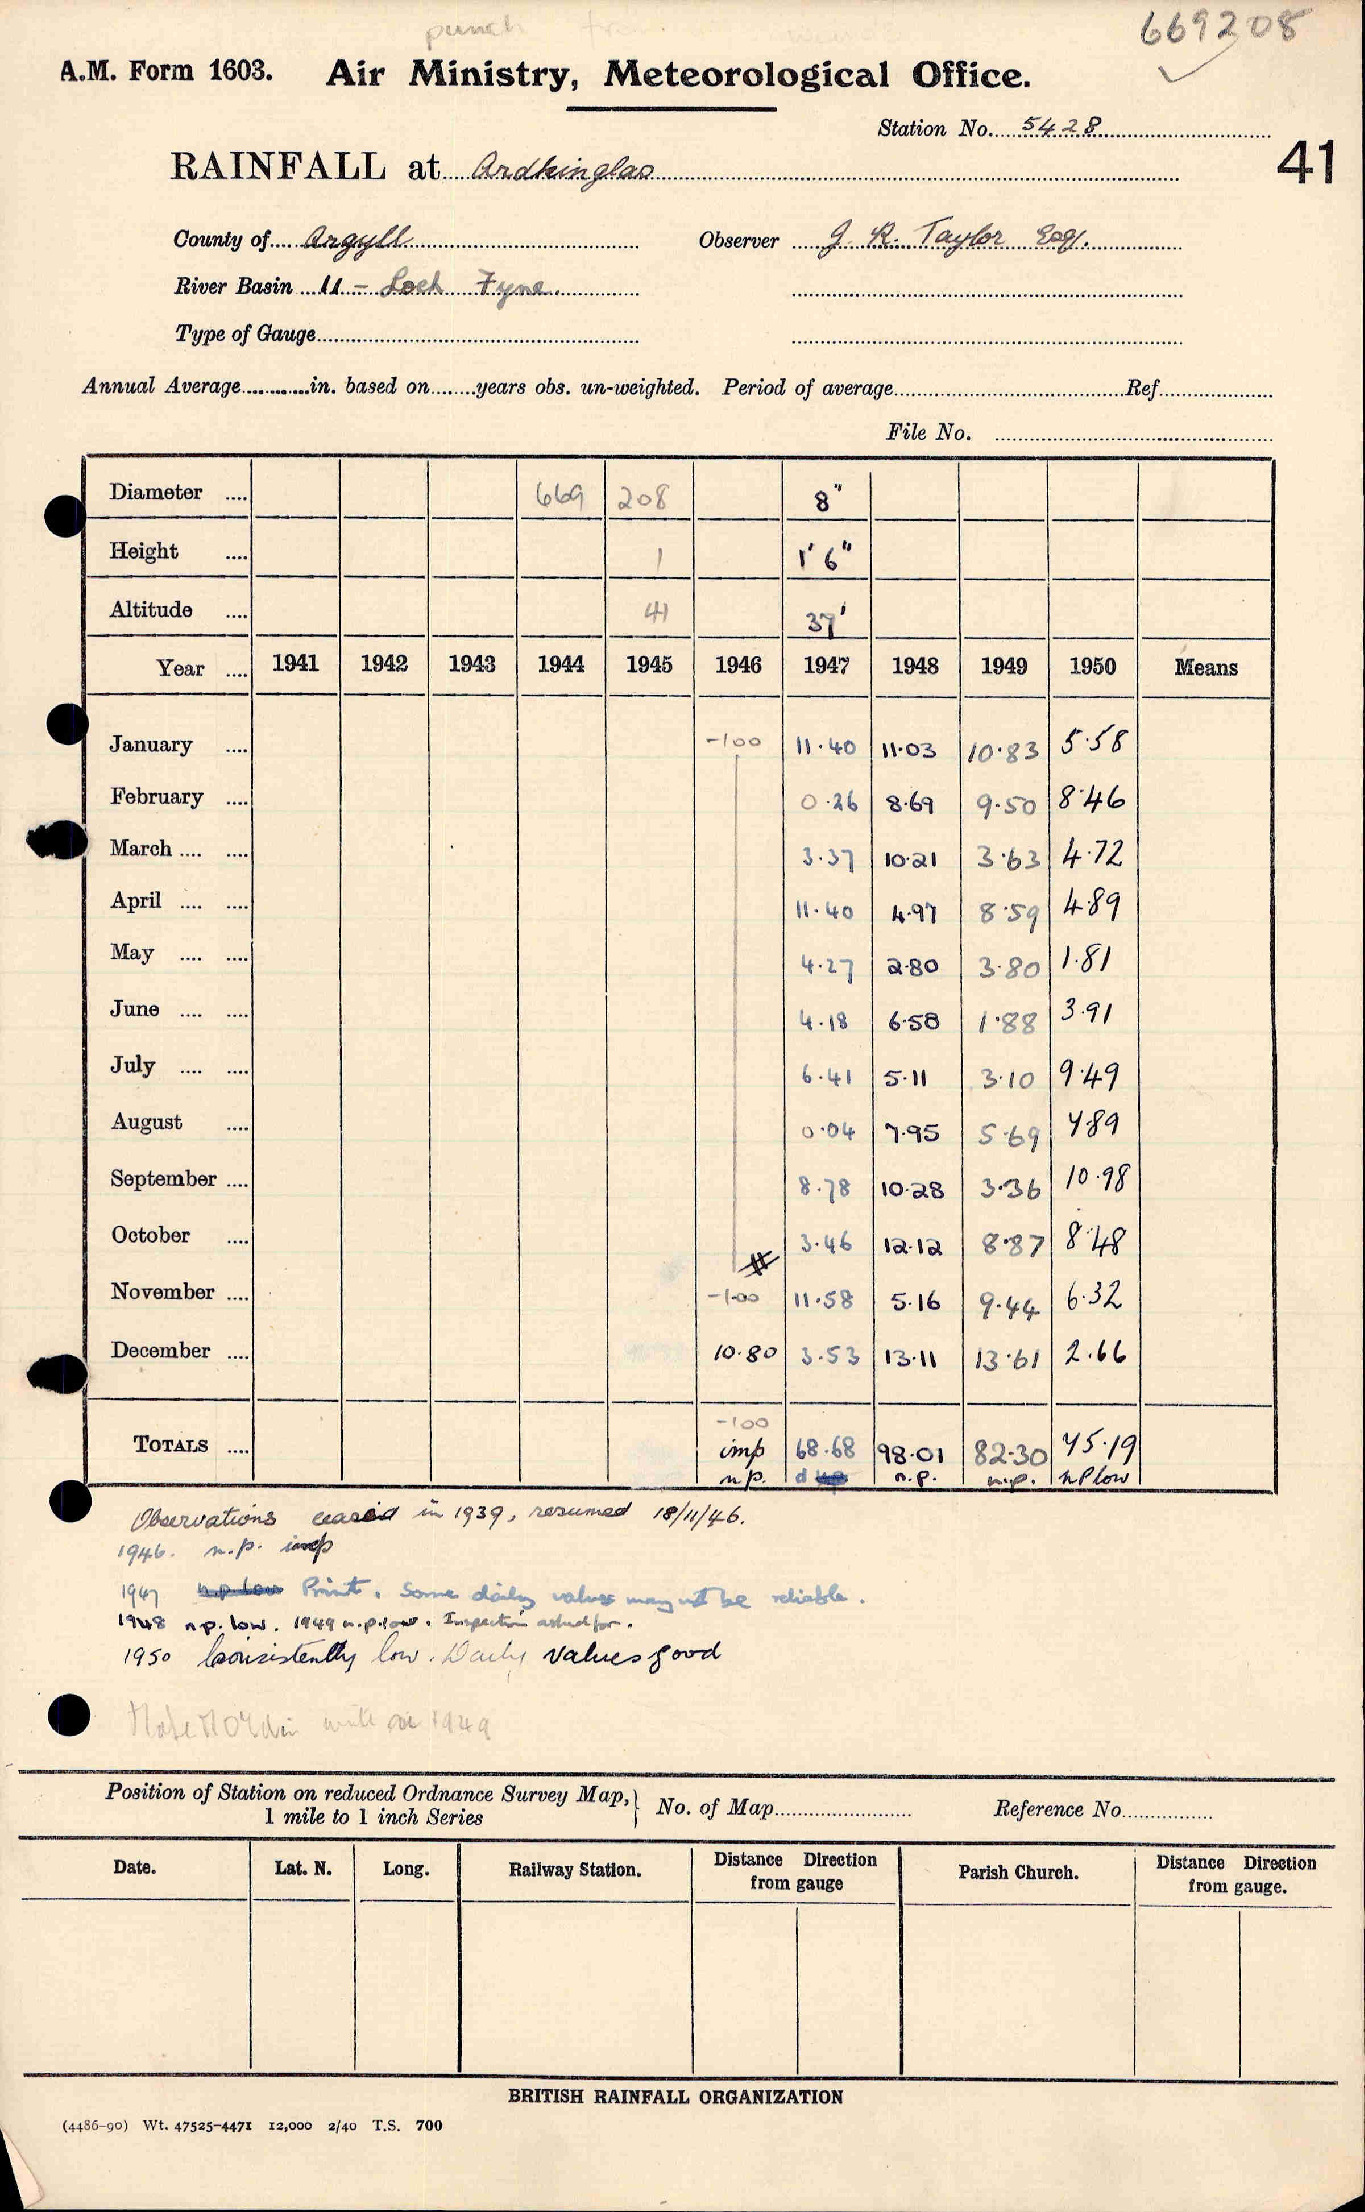 punch
669208
A.M. Form 1603. Air Ministry, Meteorological Office.
Station No. 5428
41
RAINFALL at Ardkinglas
County of Argyll Observer J. R. Taylor Esq.
River Basin 11 - Loch Fyne.
Type of Gauge
Annual Average in. based on years obs. un-weighted. Period of average Ref.
File No.
Diameter 669 208 8"
Height 1 1' 6"
Altitude 41 37'
Year 1941 1942 1943 1944 1945 1946 1947 1948 1949 1950 Means
January -100 11.40 11.03 10.83 5.58
February 0.26 8.69 9.50 8.46
March 3.37 10.21 3.63 4.72
April 11.40 4.97 8.59 4.89
May 4.27 2.80 3.80 1.81
June 4.18 6.58 1.88 3.91
July 6.41 5.11 3.10 9.49
August 0.04 7.95 5.69 7.89
September 8.78 10.28 3.36 10.98
October 3.46 12.12 8.87 8.48
November -100 11.58 5.16 9.44 6.32
December 10.80 3.53 13.11 13.61 2.66
-100
TOTALS imp 68.68 98.01 82.30 75.19
n.p. d n.p. n.p. n P low
Observations ceased in 1939, resumed 18/11/46.
1946. n.p. imp
1947 n.p. low Print. Some daily values may not be reliable.
1948 n.p. low. 1949 n.p. low. Inspection asked for.
1950 Consistently low. Daily values good
1949
Position of Station on reduced Ordnance Survey Map, 1 mile to 1 inch Series } No. of Map Reference No.
Date. Lat. N. Long. Railway Station. Distance Direction from gauge Parish Church. Distance Direction from gauge.
BRITISH RAINFALL ORGANIZATION
(4486-90) Wt. 47525-4471 12,000 2/40 T.S. 700